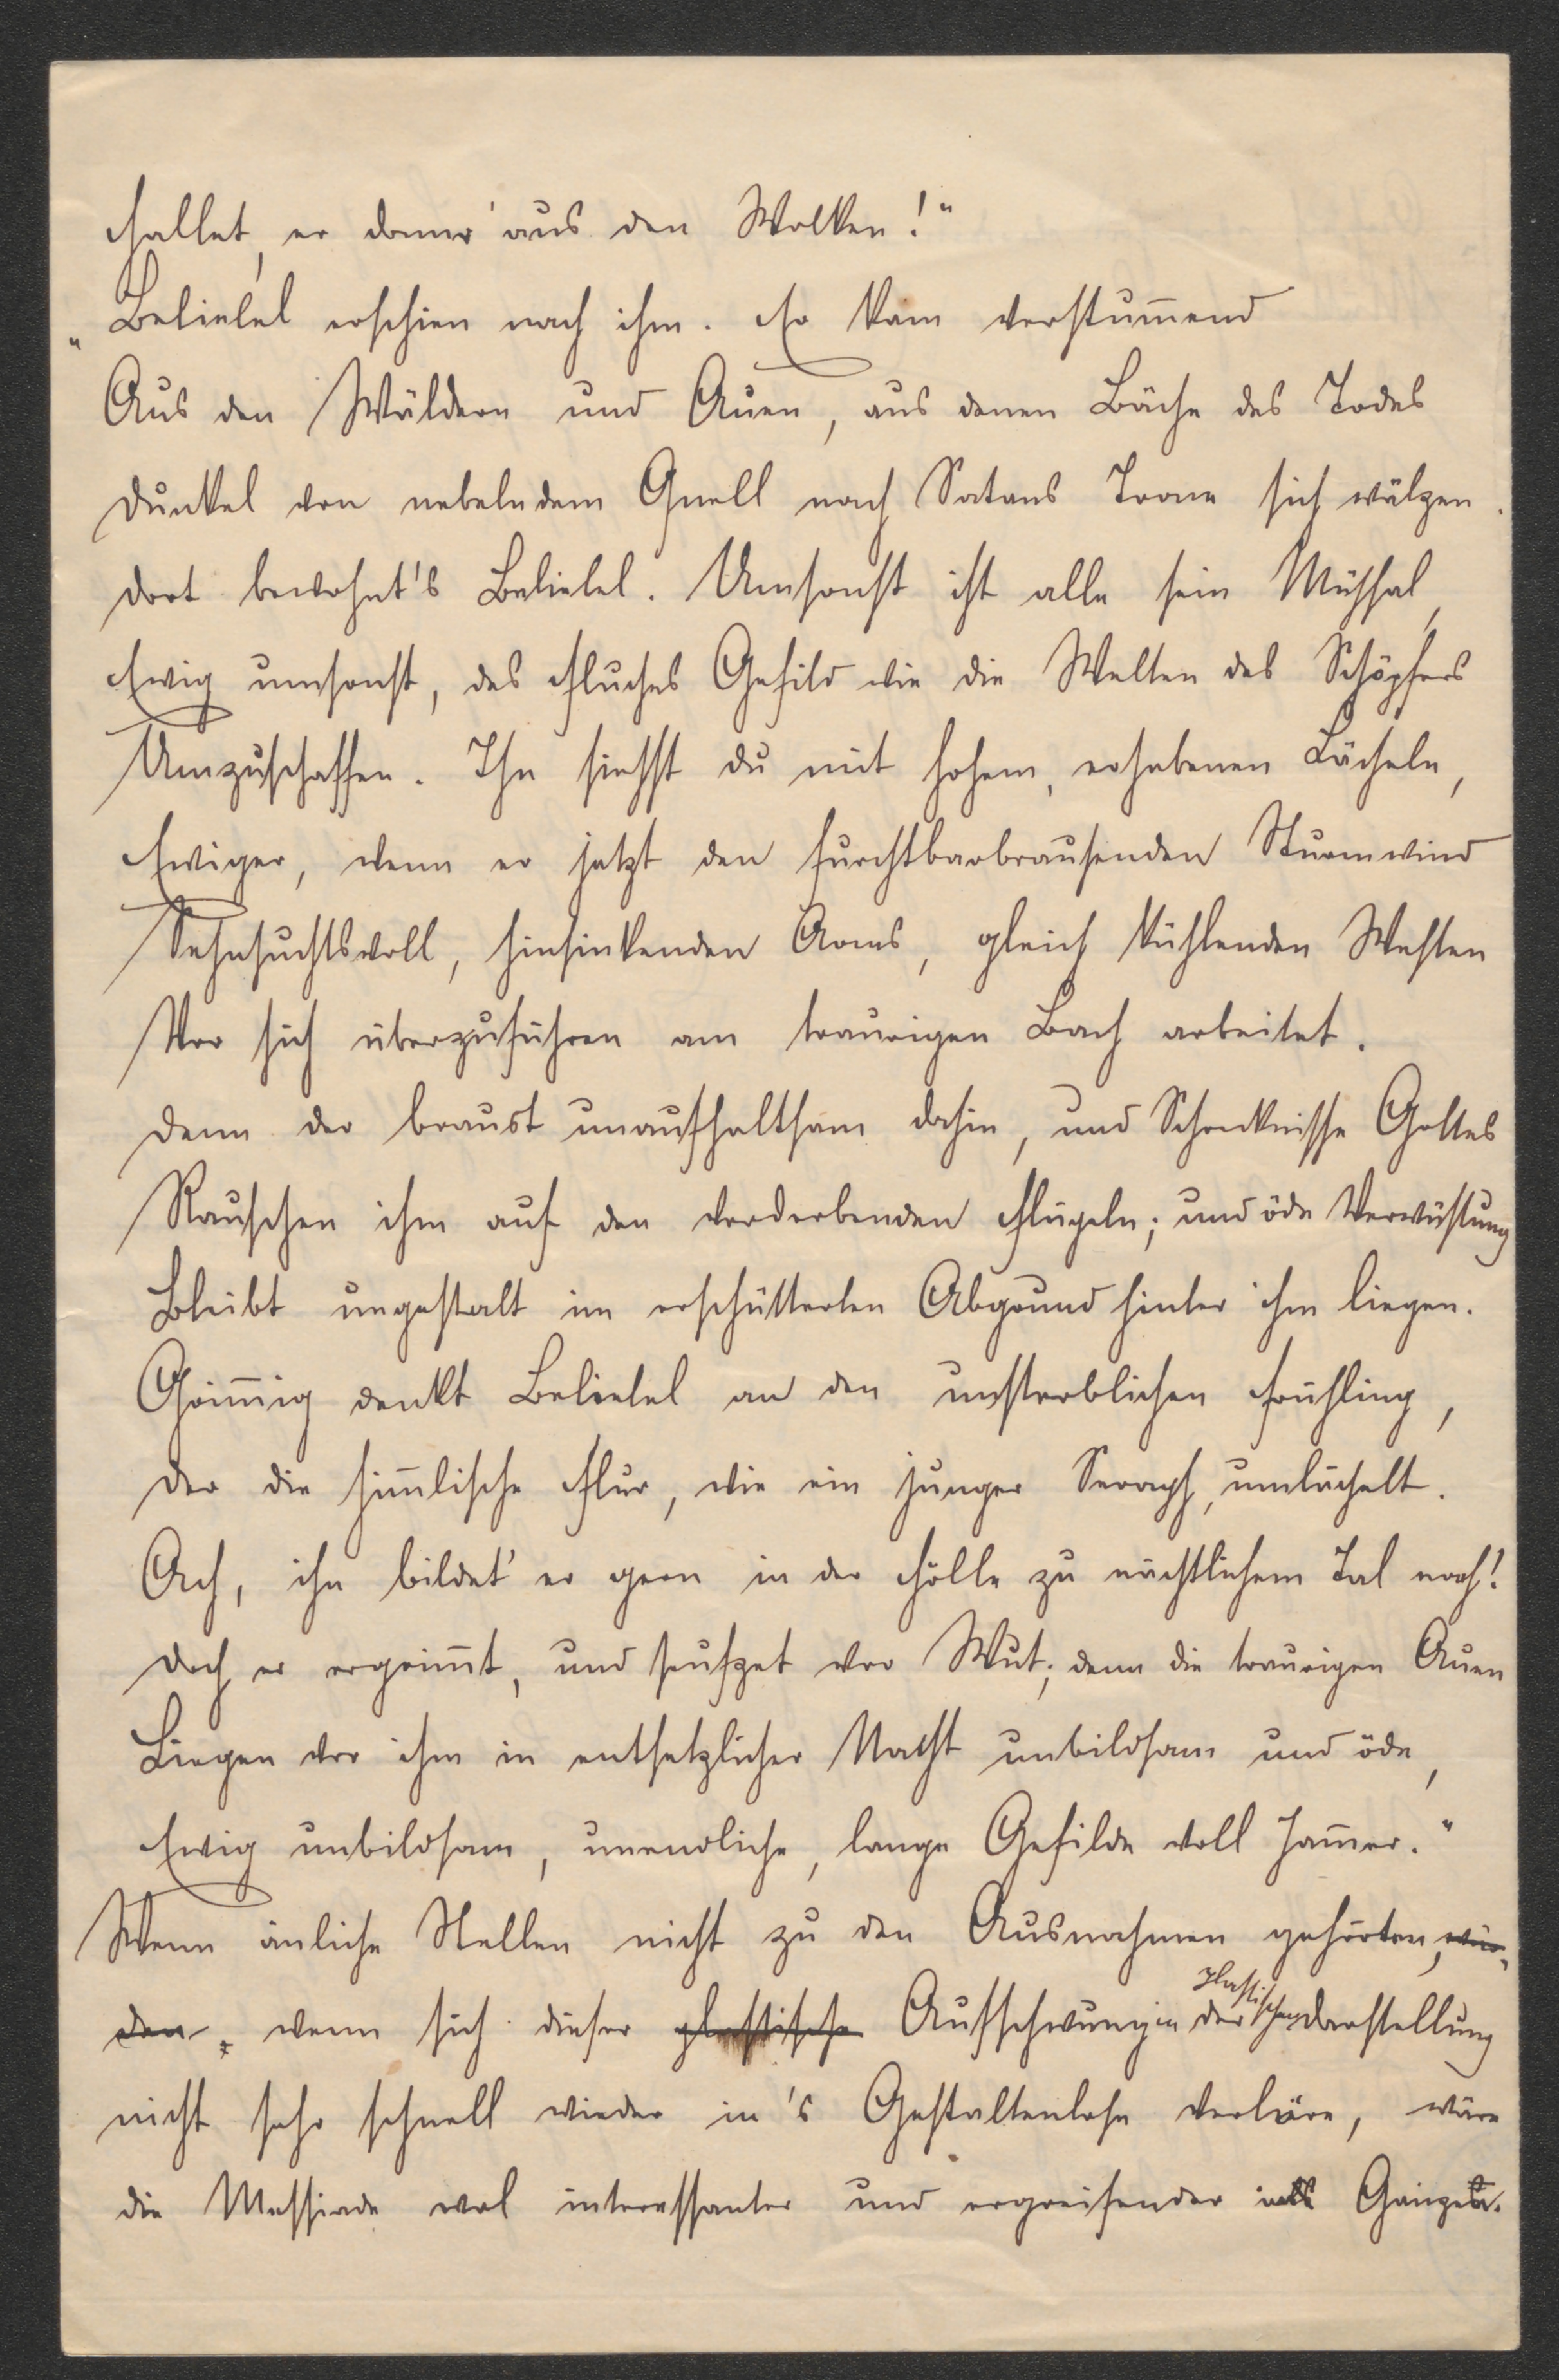 Hallet, er donnr' aus den Wolken!"
„Belielel erschien nach ihm. Er kam verstum̄end
Aus den Wäldern und Auen, aus denen Bäche des Todes
Dunkel von nebelndem Quell nach Satans Trone sich wälzen.
Dort bewohnt's Belielel. Umsonst ist alle sein Mühsal,
Ewig umsonst, des Fluches Gefild wie die Welten des Schöpfers
Umzuschaffen. Ihn siehst du mit hohem, erhabenen Lächeln,
Ewiger, wenn er jetzt den furchtbarbrausenden Sturmwind
Sehnsuchtsvoll, hinsinkenden Arms, gleich kühlenden Westen
Vor sich überzuführen am traurigen Bach arbeitet.
Denn der braust unaufhaltsam dahin, und Schrecknisse Gottes
Rauschen ihm auf den verderbenden Flügeln; und öde Verwüstung
Bleibt ungestalt im erschütterten Abgrund hinter ihm liegen.
Grim̄ig denkt Belielel an den unsterblichen Frühling,
Der die him̄lische Flur, wie ein junger Seraph, umlächelt.
Ach, ihn bildet' er gern in der Hölle zu nächtlichem Tal nach!
Doch er ergrim̄t, und seufzet vor Wut; denn die traurigen Auen
Liegen vor ihm in entsetzlicher Nacht unbildsam und öde,
Ewig unbildsam, unendliche, lange Gefilde voll Jam̄er."
Wenn änliche Stellen nicht zu den Ausnahmen gehörten, wür-
den, wenn sich dieser plastische Aufschwung in der plastischen Darstellung
nicht sehr schnell wieder in's Gestaltenlose verlöre, wäre
die Messiade wol interessanter und ergreifender als Ganzes.